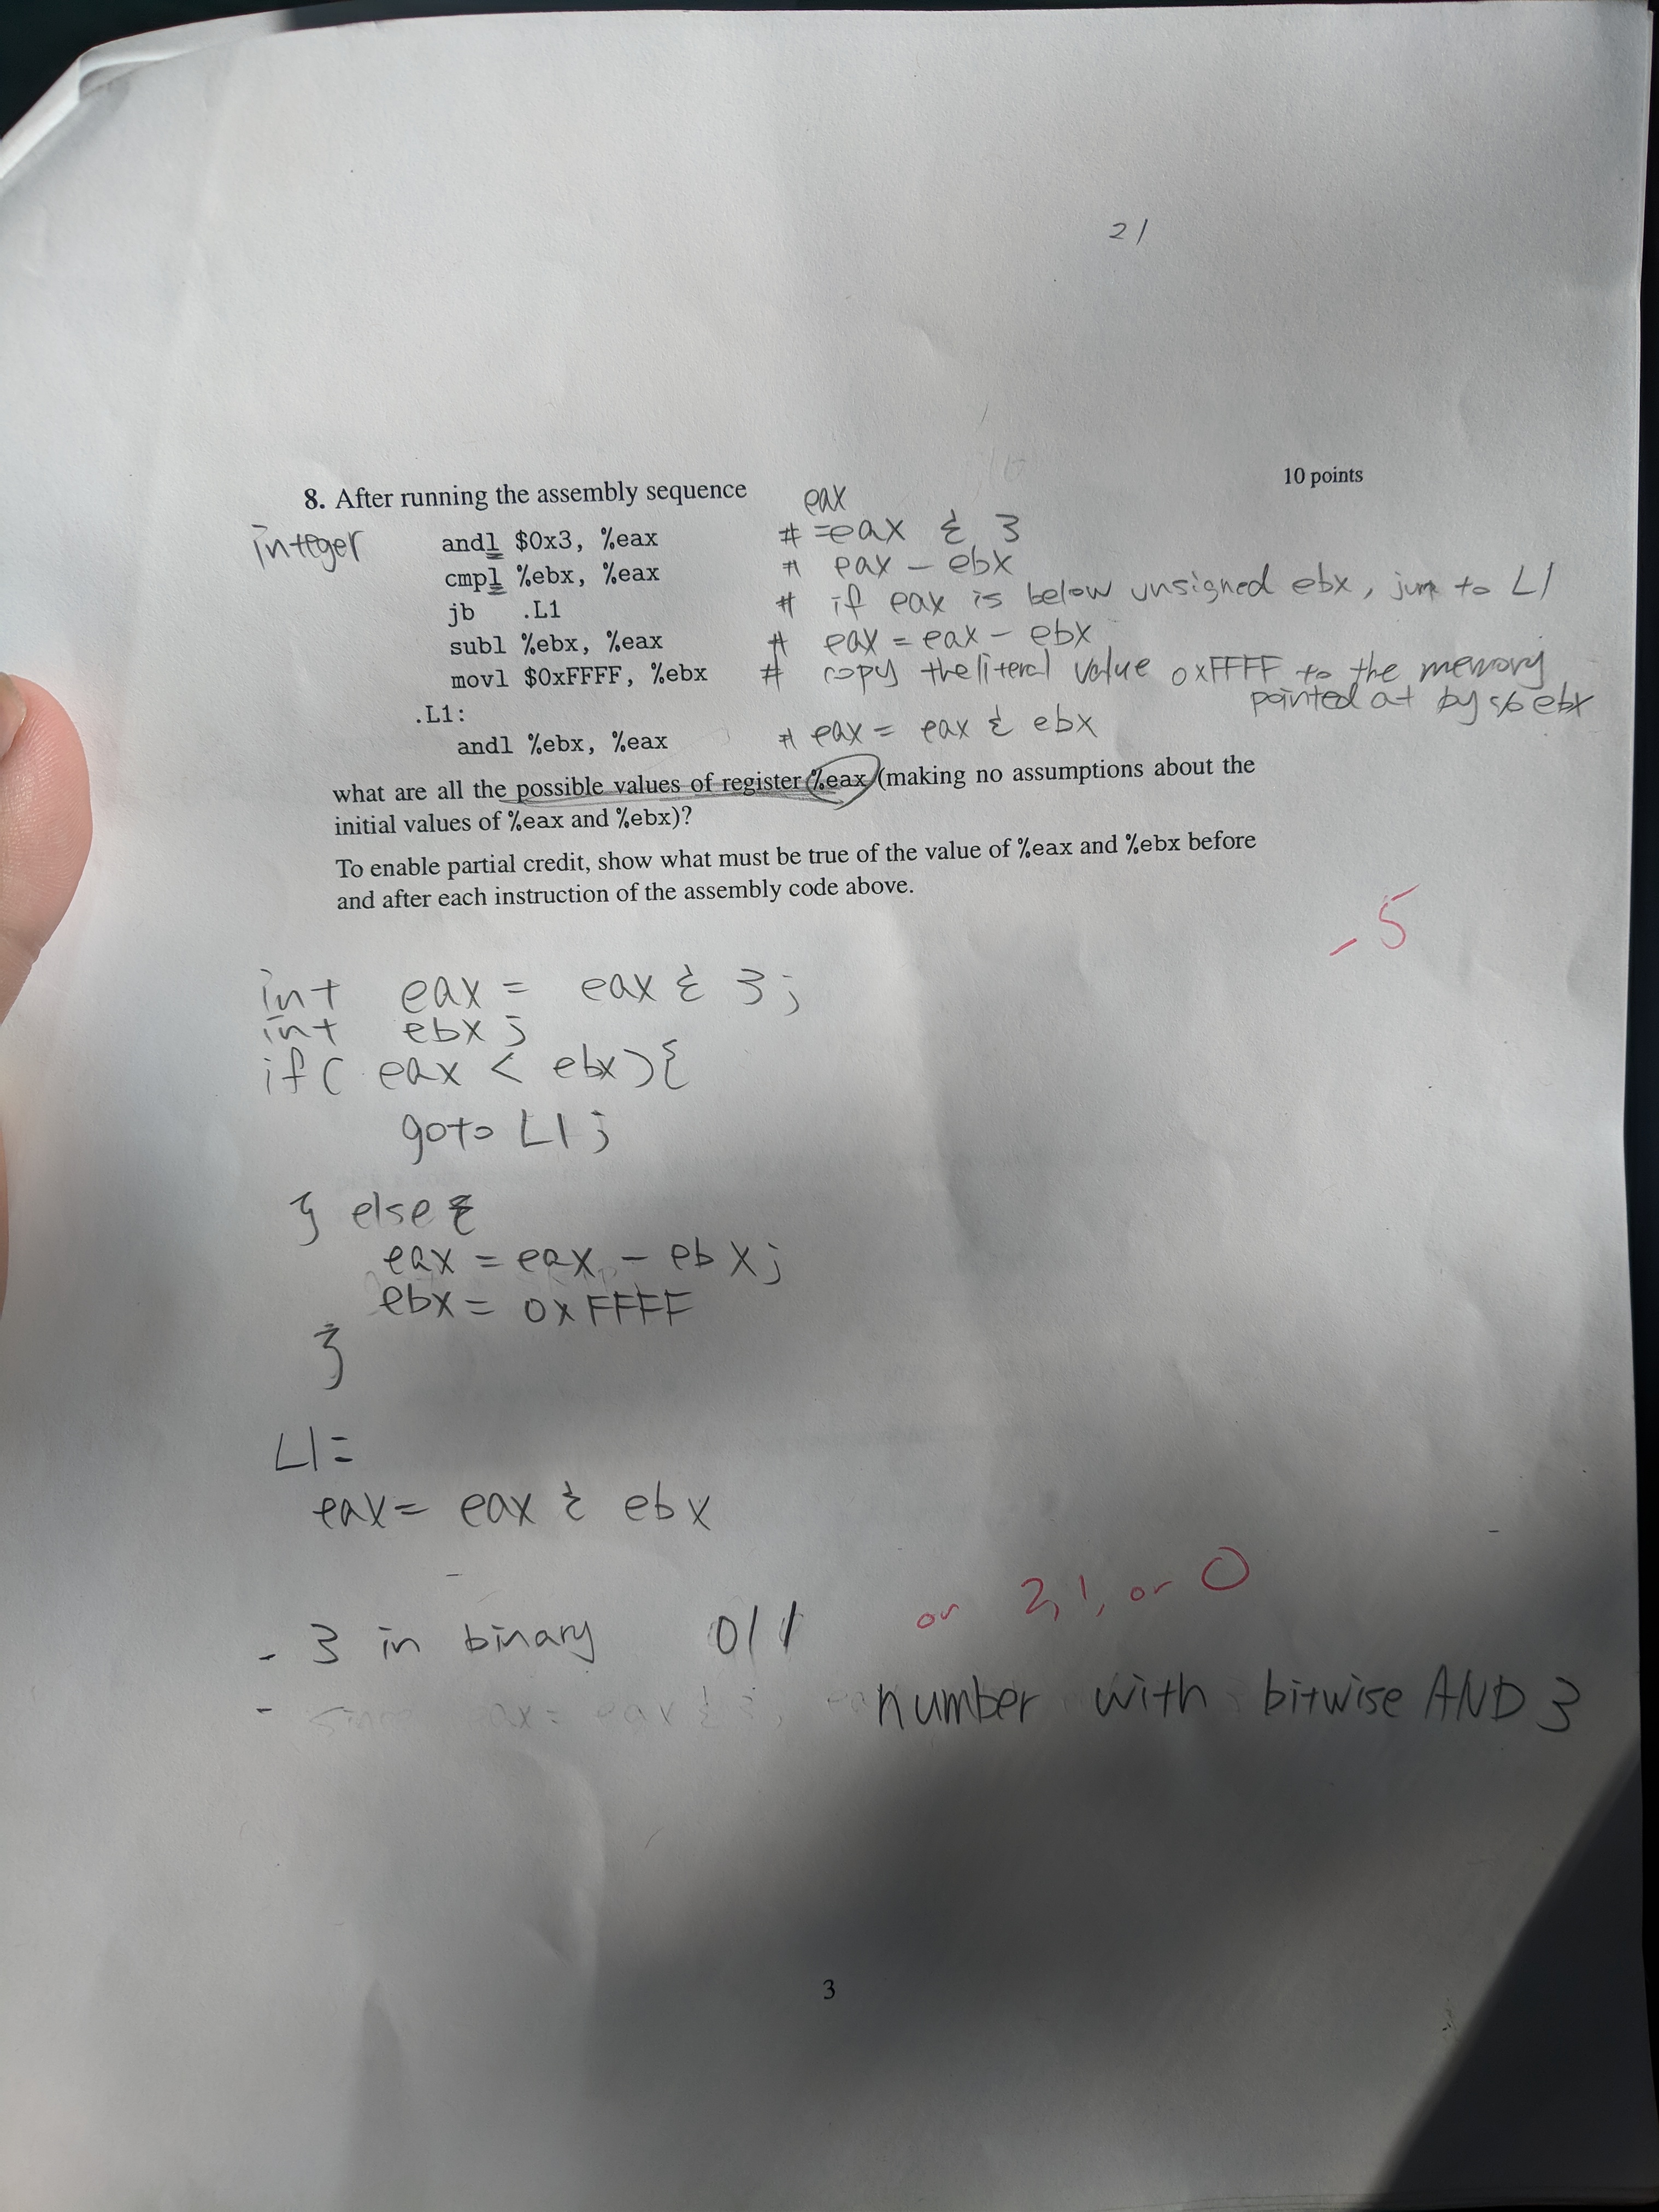 21
10 points
8. After running the assembly sequence eax
integer andl $0x3, %eax # =eax & 3
cmpl %ebx, %eax # eax - ebx
jb .L1 # if eax is below unsigned ebx, jum to L1
subl %ebx, %eax # eax = eax - ebx
movl $0xFFFF, %ebx # copy the literal value 0xFFFF to the memory
pointed at by % ebx
.L1:
andl %ebx, %eax # eax = eax & ebx
what are all the possible values of register %eax (making no assumptions about the
initial values of %eax and %ebx)?
To enable partial credit, show what must be true of the value of %eax and %ebx before
and after each instruction of the assembly code above.
-5
int eax = eax & 3;
int ebx;
if( eax < ebx){
goto L1;
} else {
eax = eax - ebx;
ebx = 0xFFFF
}
L1=
eax= eax & ebx
or 2, 1, or 0
- 3 in binary 011
- since eax = eax & 3; number with bitwise AND 3
3